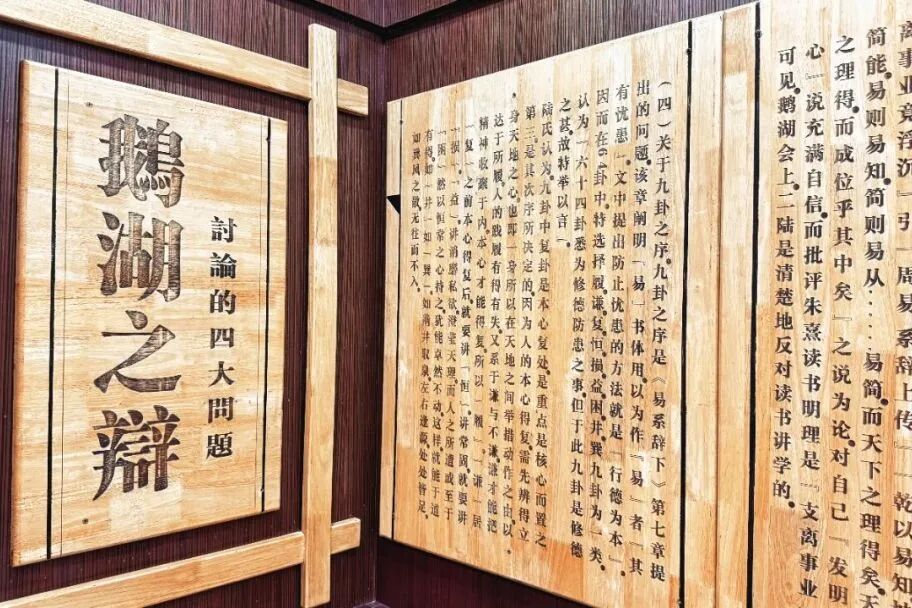 鵝湖之辯
討論的四大問題
离事业竟浮沉』引『周易系辞上传』『乾以易知
简能。易则易知，简则易从……易简，而天下之理得矣。天
之理得，而成位乎其中矣』之说为论，对自己『发明
心』说充满自信，而批评朱熹读书明理是『支离事业
可见，鹅湖会上，二陆是清楚地反对读书讲学的。
（四）关于九卦之序。九卦之序是《易系辞下》第七章提
出的问题。该章阐明『易』书体用。以为作『易』者『其
有忧患』文中提出防止忧患的方法就是『行德为本』。
因而在64卦中特选择履、谦、复、恒、损、益、困、井、巽九卦为一类。
认为『六十四卦悉为修德防患之事。但于此九卦是修德
之甚，故特举以言』
陆氏认为，九卦中复卦是本心复处，是重点是核心而置之
第三是其次序所决定的。因为人的本心得复，需先辨得立
身天地之心也即一身所以在天地之间举措动作之由，以
达于所履，人的践履有得有失。又系于谦与不谦。谦才能把
精神收敛于内，本心才能得复。所以『履』、『谦』居
『复』之前。本心得复后，就要讲『恒』，讲常固。就要讲
『损』、『益』，讲消磨私欲，澄莹天理。而人之所遭或至于
『困』，然以恒常之心持之，犹能卓然不动。这样，就能于道
有得，如『井』如『巽』。如凿井取泉，左右逢源，处处皆足。
如巽风之散，无往而不入。